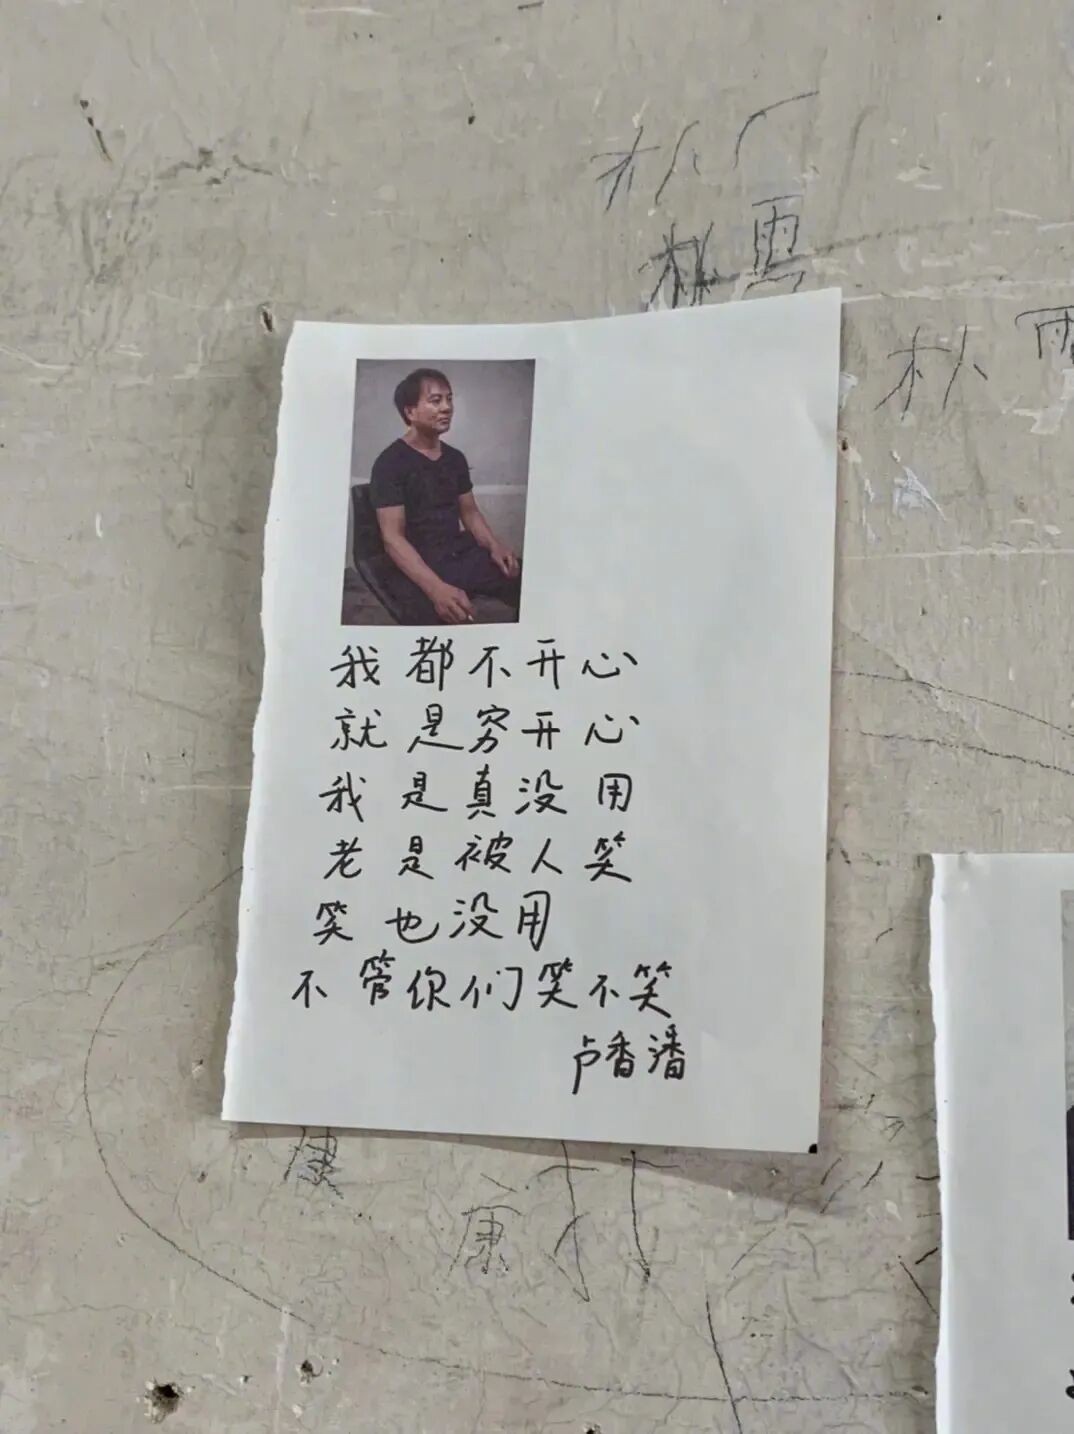 雨
我都不开心
就是穷开心
我是真没用
老是被人笑
笑也没用
不管你们笑不笑
卢香潘
康
康